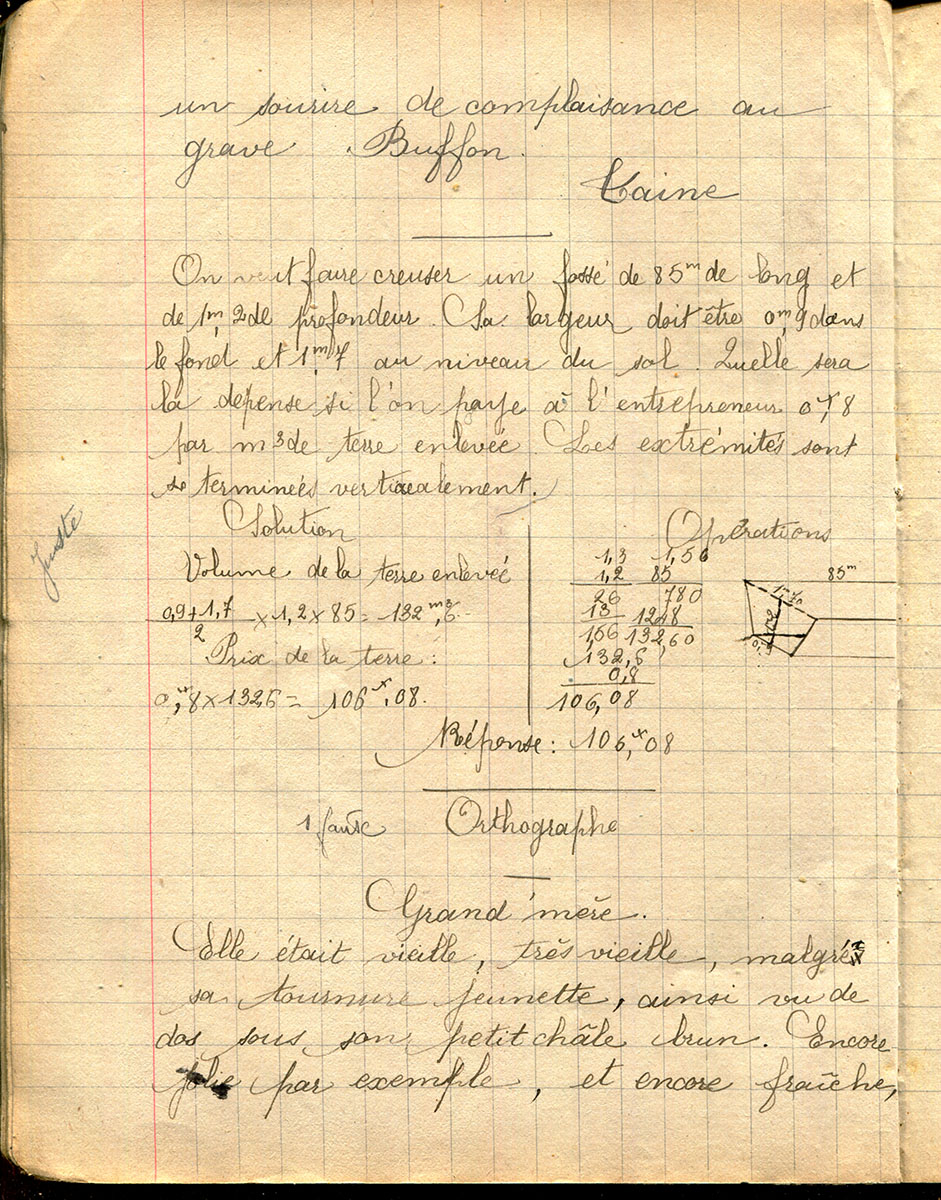 un sourire de complaisance au
grave Buffon.
Taine
On veut faire creuser un fossé de 85m de long et
de 1m,2 de profondeur. Sa largeur doit être 0m,9 dans
le fond et 1m,7 au niveau du sol. Quelle sera
la dépense si l'on paye à l'entrepreneur 0f,8
par m3 de terre enlevée. Les extrémités sont
terminées verticalement.
Juste
Solution
Opérations
Volume de la terre enlevée
0,9+1,7
2
×1,2×85= 132m3,6
Prix de la terre :
0f,8×132,6= 106f,08.
1,3 1,56
1,2 85
26 780
13 1248
1,56 132,60
132,6
0,8
106,08
85m
Réponse: 106,f08
1 faute Orthographe
Grand'mère.
Elle était vieille, très vieille, malgré
sa tournure jeunette, ainsi vu de
dos sous son petit châle brun. Encore
jolie par exemple, et encore fraîche,